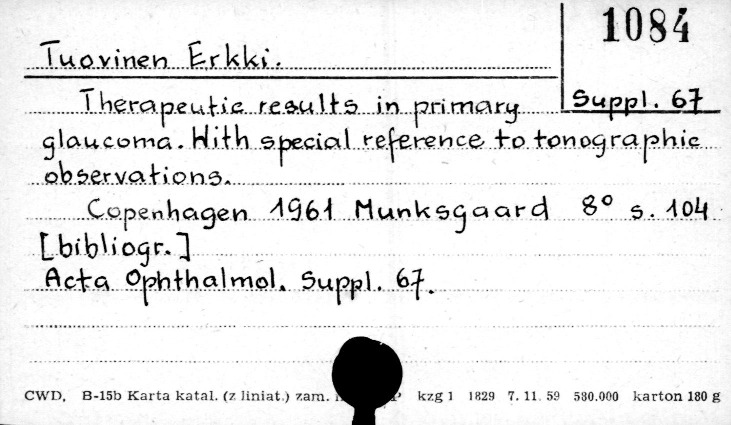 1084
Tuovinen Erkki.
Suppl. 67
Therapeutic results in primary
glaucoma. With special reference to tonographic
observations.
Copenhagen 1961 Munksgaard 8° s. 104
[bibliogr.]
Acta Ophthalmol. Suppl. 67.
CWD, B-15b Karta katal. (z liniat.) zam. kzg 1 1829 7. 11. 59 580.000 karton 180 g